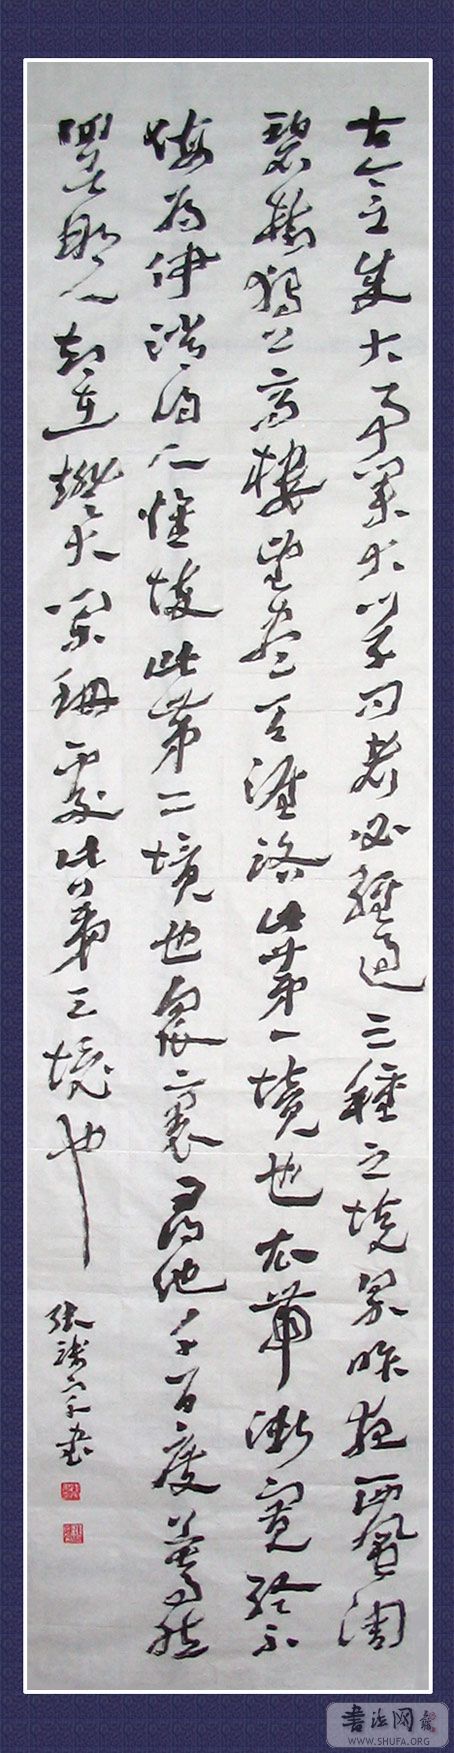 古今之成大事業大學問者必經過三種之境界昨夜西風凋
碧樹獨上高樓望盡天涯路此第一境也衣帶漸寬終不
悔為伊消得人憔悴此第二境也眾裏尋他千百度驀然
回首那人却在燈火闌珊處此第三境也
張書
書法网
WWW.SHUFA.ORG